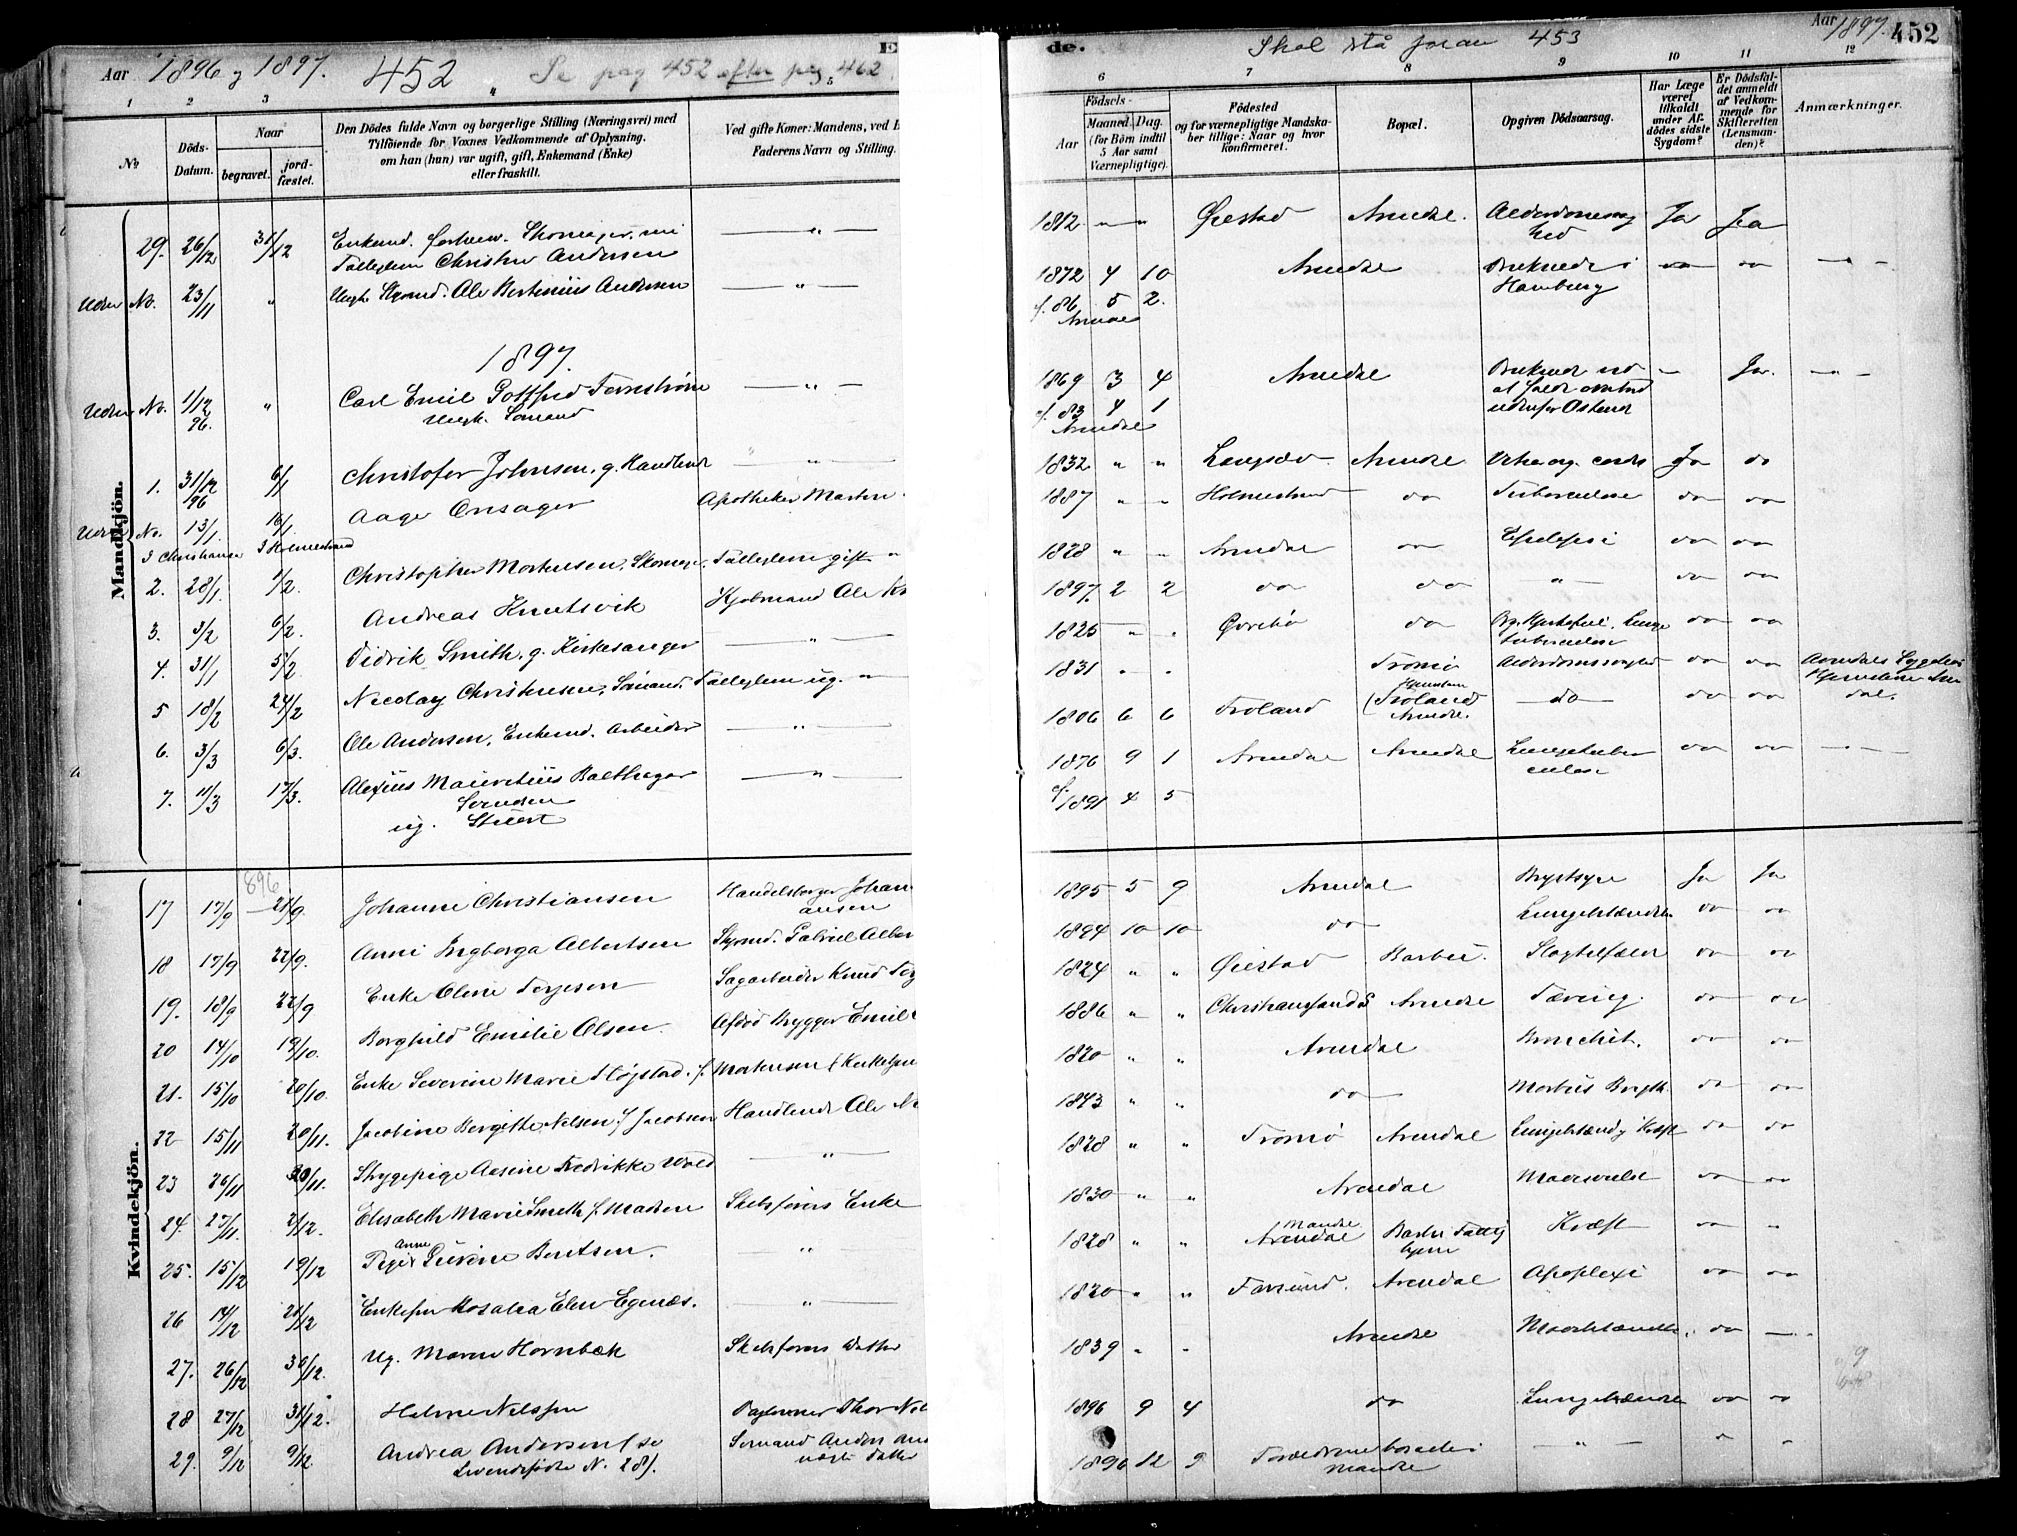 Aar 1896 og 1897. 452 Se pag 452 efter pag 462
E
1 2 3 4 5
No
Døds-Datum.
Naar
begravet.
jordfæstet.
Den Dødes fulde Navn og borgerlige Stilling (Næringsvei) med
Tilføiende for Voxnes Vedkommende af Oplysning,
om han (hun) var ugift, gift, Enkemand (Enke)
eller fraskilt.
Ved gifte Koner: Mandens, ved B
Faderens Navn og Stilling.
Mandkjøn.
29. 26/12 31/12 Enkemd. forhenv. Skomager, nu
Fattiglem Christen Andersen
Uden No. 23/11 " Ungk. Styrmd. Ole Bertinius Andersen
1897.
Uden No. 1/12 96. " Carl Emil Gottfred Fernstrøm
Ungk. Sømand
1. 31/12 96 6/1 Christofer Johnsen, g. Handlende
Uden No. 13/1. 16/1 Aage Onsager Apotheker Marten
I Christiania I Holmestrand
2. 28/1. 1/2. Christopher Mortensen, Skomager, Fattiglem gift
3. 3/2 6/2. Andreas Knutsvik Kjøbmand Ole Kn
4. 31/1 5/2 Didrik Smith, g. Kirkesanger
5 18/2 24/2 Nicolay Christensen, Sømand, Fattiglem ug.
6. 3/3 6/3. Ole Andersen, Enkemd. Arbeider
7. 11/3 17/3. Alexius Mauritius Balthazar
Svendsen
ug. Stuert
Kvindekjøn.
1896
17 17/9 21/9. Johanne Christiansen Handelsborger Johan
ansen
18 17/9 22/9. Anne Ingeborga Albertsen Styrmd. Gabriel Alber
19. 18/9 22/9 Enke Oline Terjesen Sagarbeider Knud Terj
20 14/10 19/10. Borghild Emilie Olsen. Afdød Brygger Emil
21. 15/10 20/10. Enke Severine Marie Højstad. f. Mortensen
22 15/11 20/11. Jacobine Bergitte Nilsen f Jacobsen Handlende Ole N
23 26/11 30/11. Sygepige Aasine Fredrikke Wold
24. 27/11. 2/12. Elisabeth Marie Smith f. Madsen Skibsførers Enke
25. 15/12 19/12 Pige Anne Severine Bentsen.
26 14/12 21/12 Enkefru Rosalia Elen Egenæs.
27. 26/12 30/12. Ug. Maren Hornbæk Skibsførers Datter
28 27/12 31/12. Halvor Nilssen Thor Nil
29. 9/12 9/12. Andrea Andersen (se Sømand Anders And
Levendefødte N. 28). uægte Datter
de. Skal stå foran 453 Aar 1897. 452
6 7 8 9 10 11 12
Fødsels-
Aar
Maaned. Dag.
(for Børn indtil
5 Aar samt
Værnepligtige).
Fødested
og for værnepligtige Mandskaber
tillige: Naar og hvor
konfirmeret.
Bopæl.
Opgiven Dødsaarsag.
Har Læge
været
tilkaldt
under Afdødes
sidste
Sygdom?
Er Dødsfaldet
anmeldt
af Vedkommende
for
Skifteretten
(Lensmanden)?
Anmærkninger.
1812 " " Øiestad Arendal. Alderdomssvaghed Ja Ja
1872 4 10 Arendal Druknede i
Hamburg
cf. 86 5 2.
Arendal
1869 3 4 Arendal Druknede ved - Ja.
cf. 83 4 1
Arendal
udenfor Ostende
1832 " " Langsæ Arendal Vitium org. cordis Ja do
1887 " " Holmestrand do Tuberculose do do
1828 " " Arendal do Epilepsi do do
1897. 2 2 do do " do do
1825 " " Grorebø do Org. Hjertefeil, Lunge
tuberculose do do
1831 " " Tromø Alderdomssvaghed do do Arendals Sygehus
1806 6 6 Froland (Froland
Arendal. do do do
1876 9 1 Arendal Arendal Lungetuber
culose do do
cf. 1891 4 5
1895 5 9 Arendal Brystsyge Ja Ja
1894 10 10 do Lungebetændelse do do
1824 " " Øiestad Barbu. Slagtilfælde do do
1886 " " Christianssands Arendal Tæring. do do
1820 " " Arendal Bronchit. do do
1843 " " do Morbus Brigth. do do
1828 " " Tromø Arendal Lungebetænd. og Kræft do do
1830 " " Arendal Mavesvulst do do
1828 " " Arendal Barbu Fattig
hjem Kræft do "
1820 " " Farsund. Arendal Apoplexi do do
1839 " " Arendal do
1896 9 4 do Lungebetændelse do do
1896 12 9 Forældrene bosatte i
Mandal "